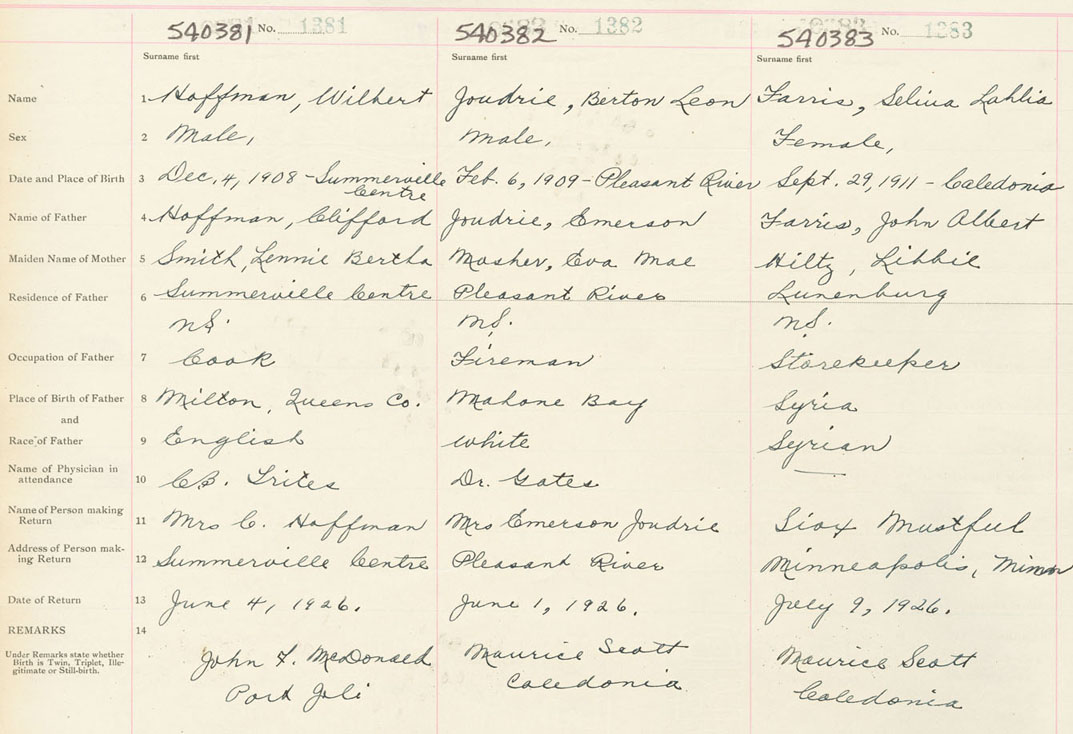 540381 No. 1381 540382 No. 1382 540383 No. 1383
Surname first Surname first Surname first
Name 1 Hoffman, Wilbert Joudrie, Berton Leon Farris, Selina Lahlia
Sex 2 Male, Male, Female,
Date and Place of Birth 3 Dec. 4, 1908 - Summerville Centre Feb. 6, 1909 - Pleasant River Sept. 29, 1911 - Caledonia
Name of Father 4 Hoffman, Clifford Joudrie, Emerson Farris, John Albert
Maiden Name of Mother 5 Smith, Lennie Bertha Mosher, Eva Mae Hiltz, Libbie
Residence of Father 6 Summerville Centre Pleasant River Lunenburg
N.S. N.S. N.S.
Occupation of Father 7 Cook Fireman Storekeeper
Place of Birth of Father 8 Milton, Queens Co. Mahone Bay Syria
and
Race of Father 9 English White Syrian
Name of Physician in
attendance 10 C.B. Trites Dr. Gates —
Name of Person making
Return 11 Mrs C. Hoffman Mrs Emerson Joudrie Mustful
Address of Person mak-
ing Return 12 Summerville Centre Pleasant River Minneapolis, Minn
Date of Return 13 June 4, 1926. June 1, 1926. July 9, 1926.
REMARKS 14
Under Remarks state whether
Birth is Twin, Triplet, Ille-
gitimate or Still-birth.
John F. McDonald Maurice Scott Maurice Scott
Port Joli Caledonia Caledonia